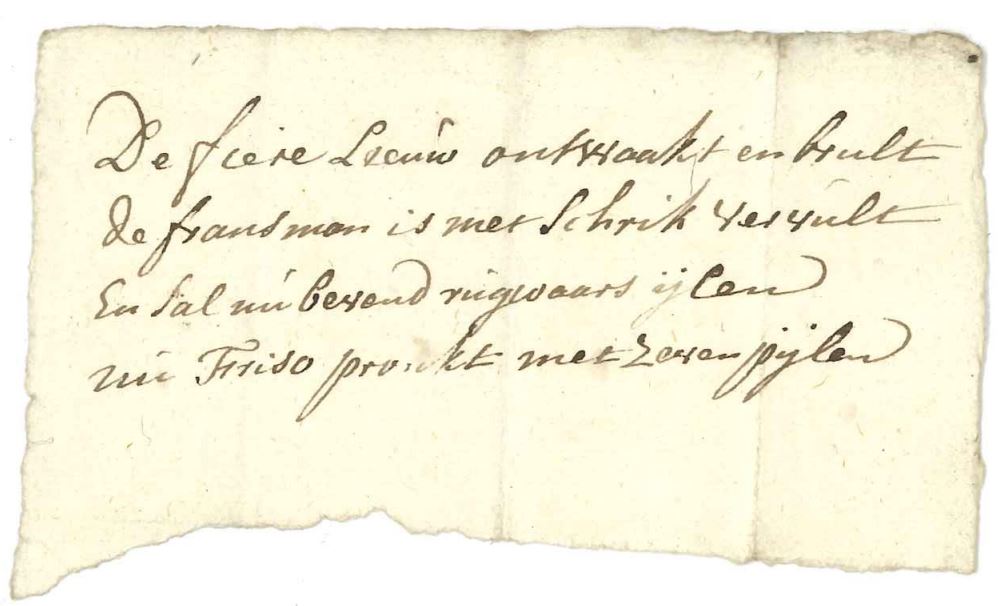 De fiere Leeuw ontwaakt en brult
de fransman is met Schrik vervult
En Sal nu bevend rugwaars ijlen
nu Friso pronkt met zeven pijlen